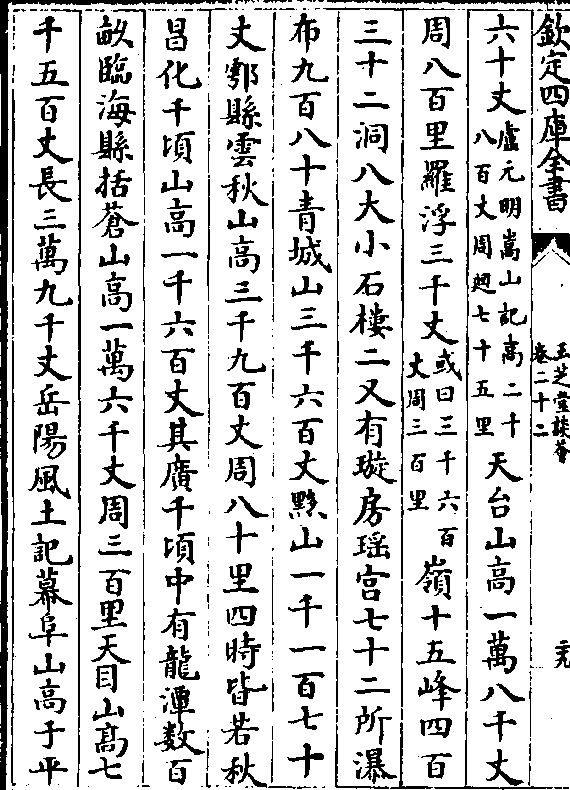 欽定四庫全書
玉芝堂談薈
卷二十二
二九
六十丈盧元明嵩山記高二十八百丈周廻七十五里天台山高一萬八千丈
周八百里羅浮三千丈或曰三千六百丈周三百里嶺十五峰四百
三十二洞八大小石樓二又有璇房瑶宫七十二所瀑
布九百八十青城山三千六百丈黟山一千一百七十
丈鄠縣雲秋山高三千九百丈周八十里四時皆若秋
昌化千頃山高一千六百丈其廣千頃中有龍潭数百
畝臨海縣括蒼山高一萬六千丈周三百里天目山髙七
千五百丈長三萬九千丈岳陽風土記幕阜山高于平